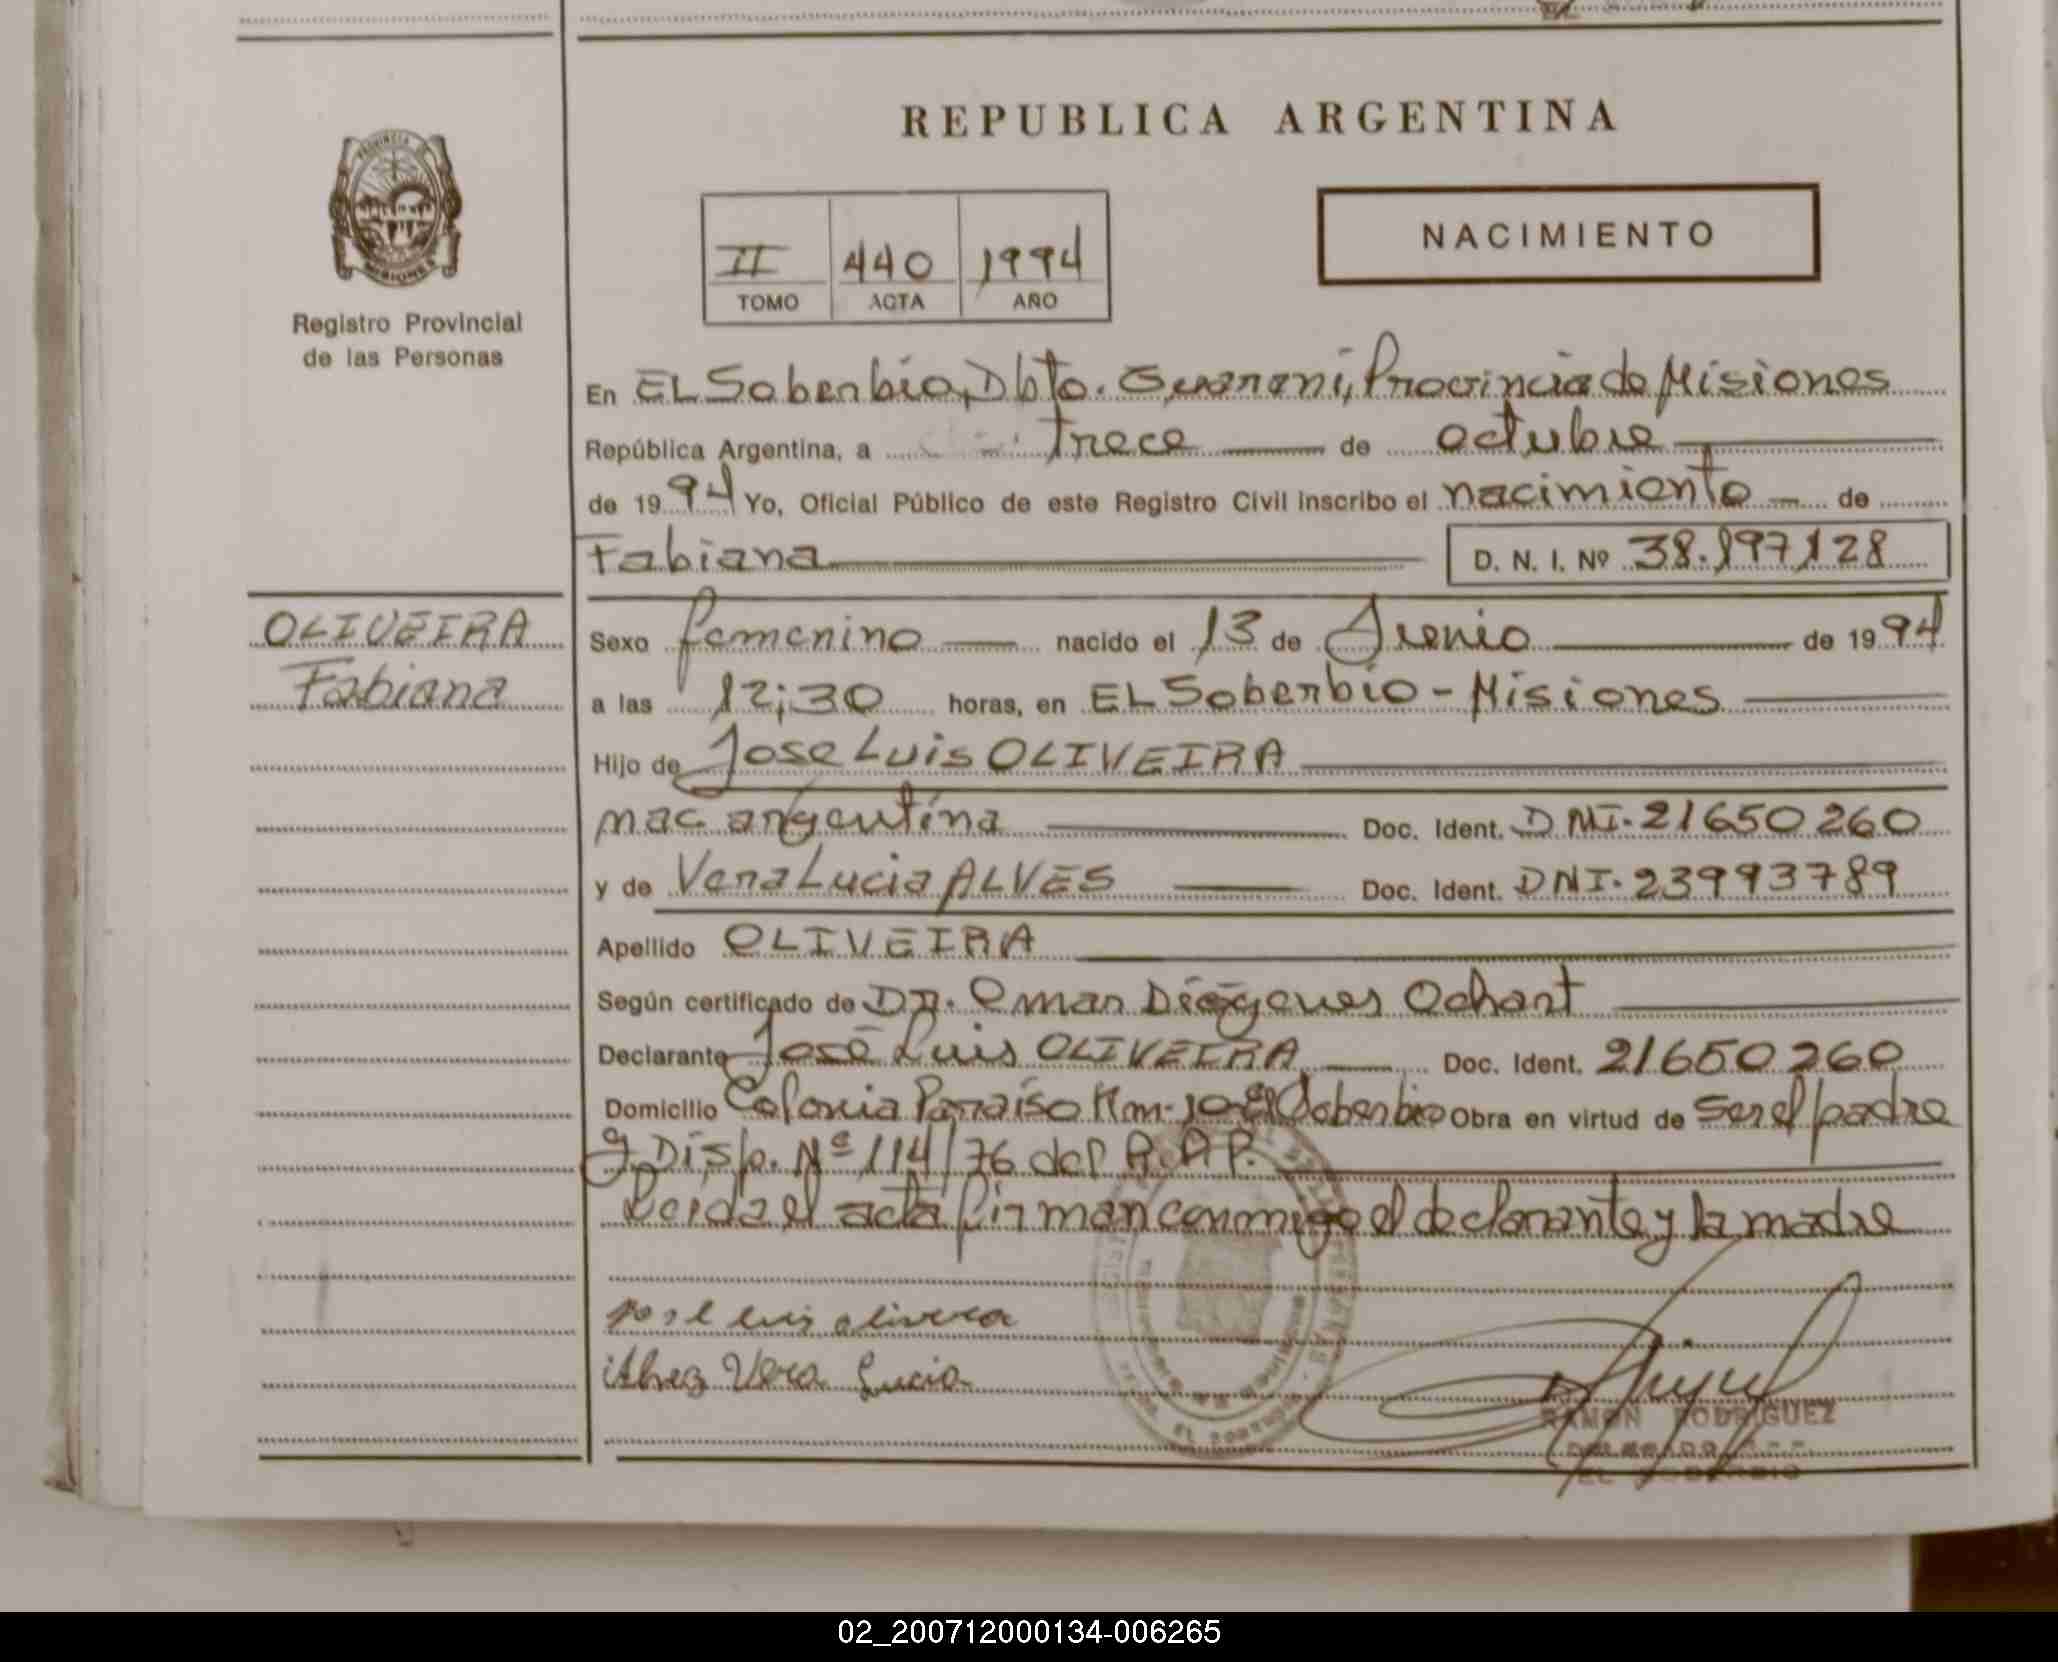 REPUBLICA ARGENTINA
PROVINCIA DE
MISIONES
Registro Provincial
de las Personas
NACIMIENTO
II 440 1994
TOMO ACTA AÑO
En EL Soberbio, Dpto. Guarani, Provincia de Misiones
República Argentina, a trece de octubre
de 1994 Yo, Oficial Público de este Registro Civil inscribo el nacimiento de
Fabiana D. N. I. Nº 38.197128
OLIVEIRA
Fabiana
Sexo femenino nacido el 13 de Junio de 1994
a las 12;30 horas, en EL Soberbio - Misiones
Hijo de Jose Luis OLIVEIRA
nac argentina Doc. Ident. DNI. 21650260
y de Vera Lucia ALVES Doc. Ident. DNI. 23993789
Apellido OLIVEIRA
Según certificado de Dr. Omar Diógenes Ochant
Declarante José Luis OLIVEIRA Doc. Ident. 21650260
Domicilio Colonia Paraiso Km-10-El Soberbio Obra en virtud de ser el padre
y Disp. Nº 114/76 del R.P.P.
Leida el acta firman conmigo el declarante y la madre
jose luis olivera
Vera Lucia
RAMON RODRIGUEZ
EL SOBERBIO
02_200712000134-006265